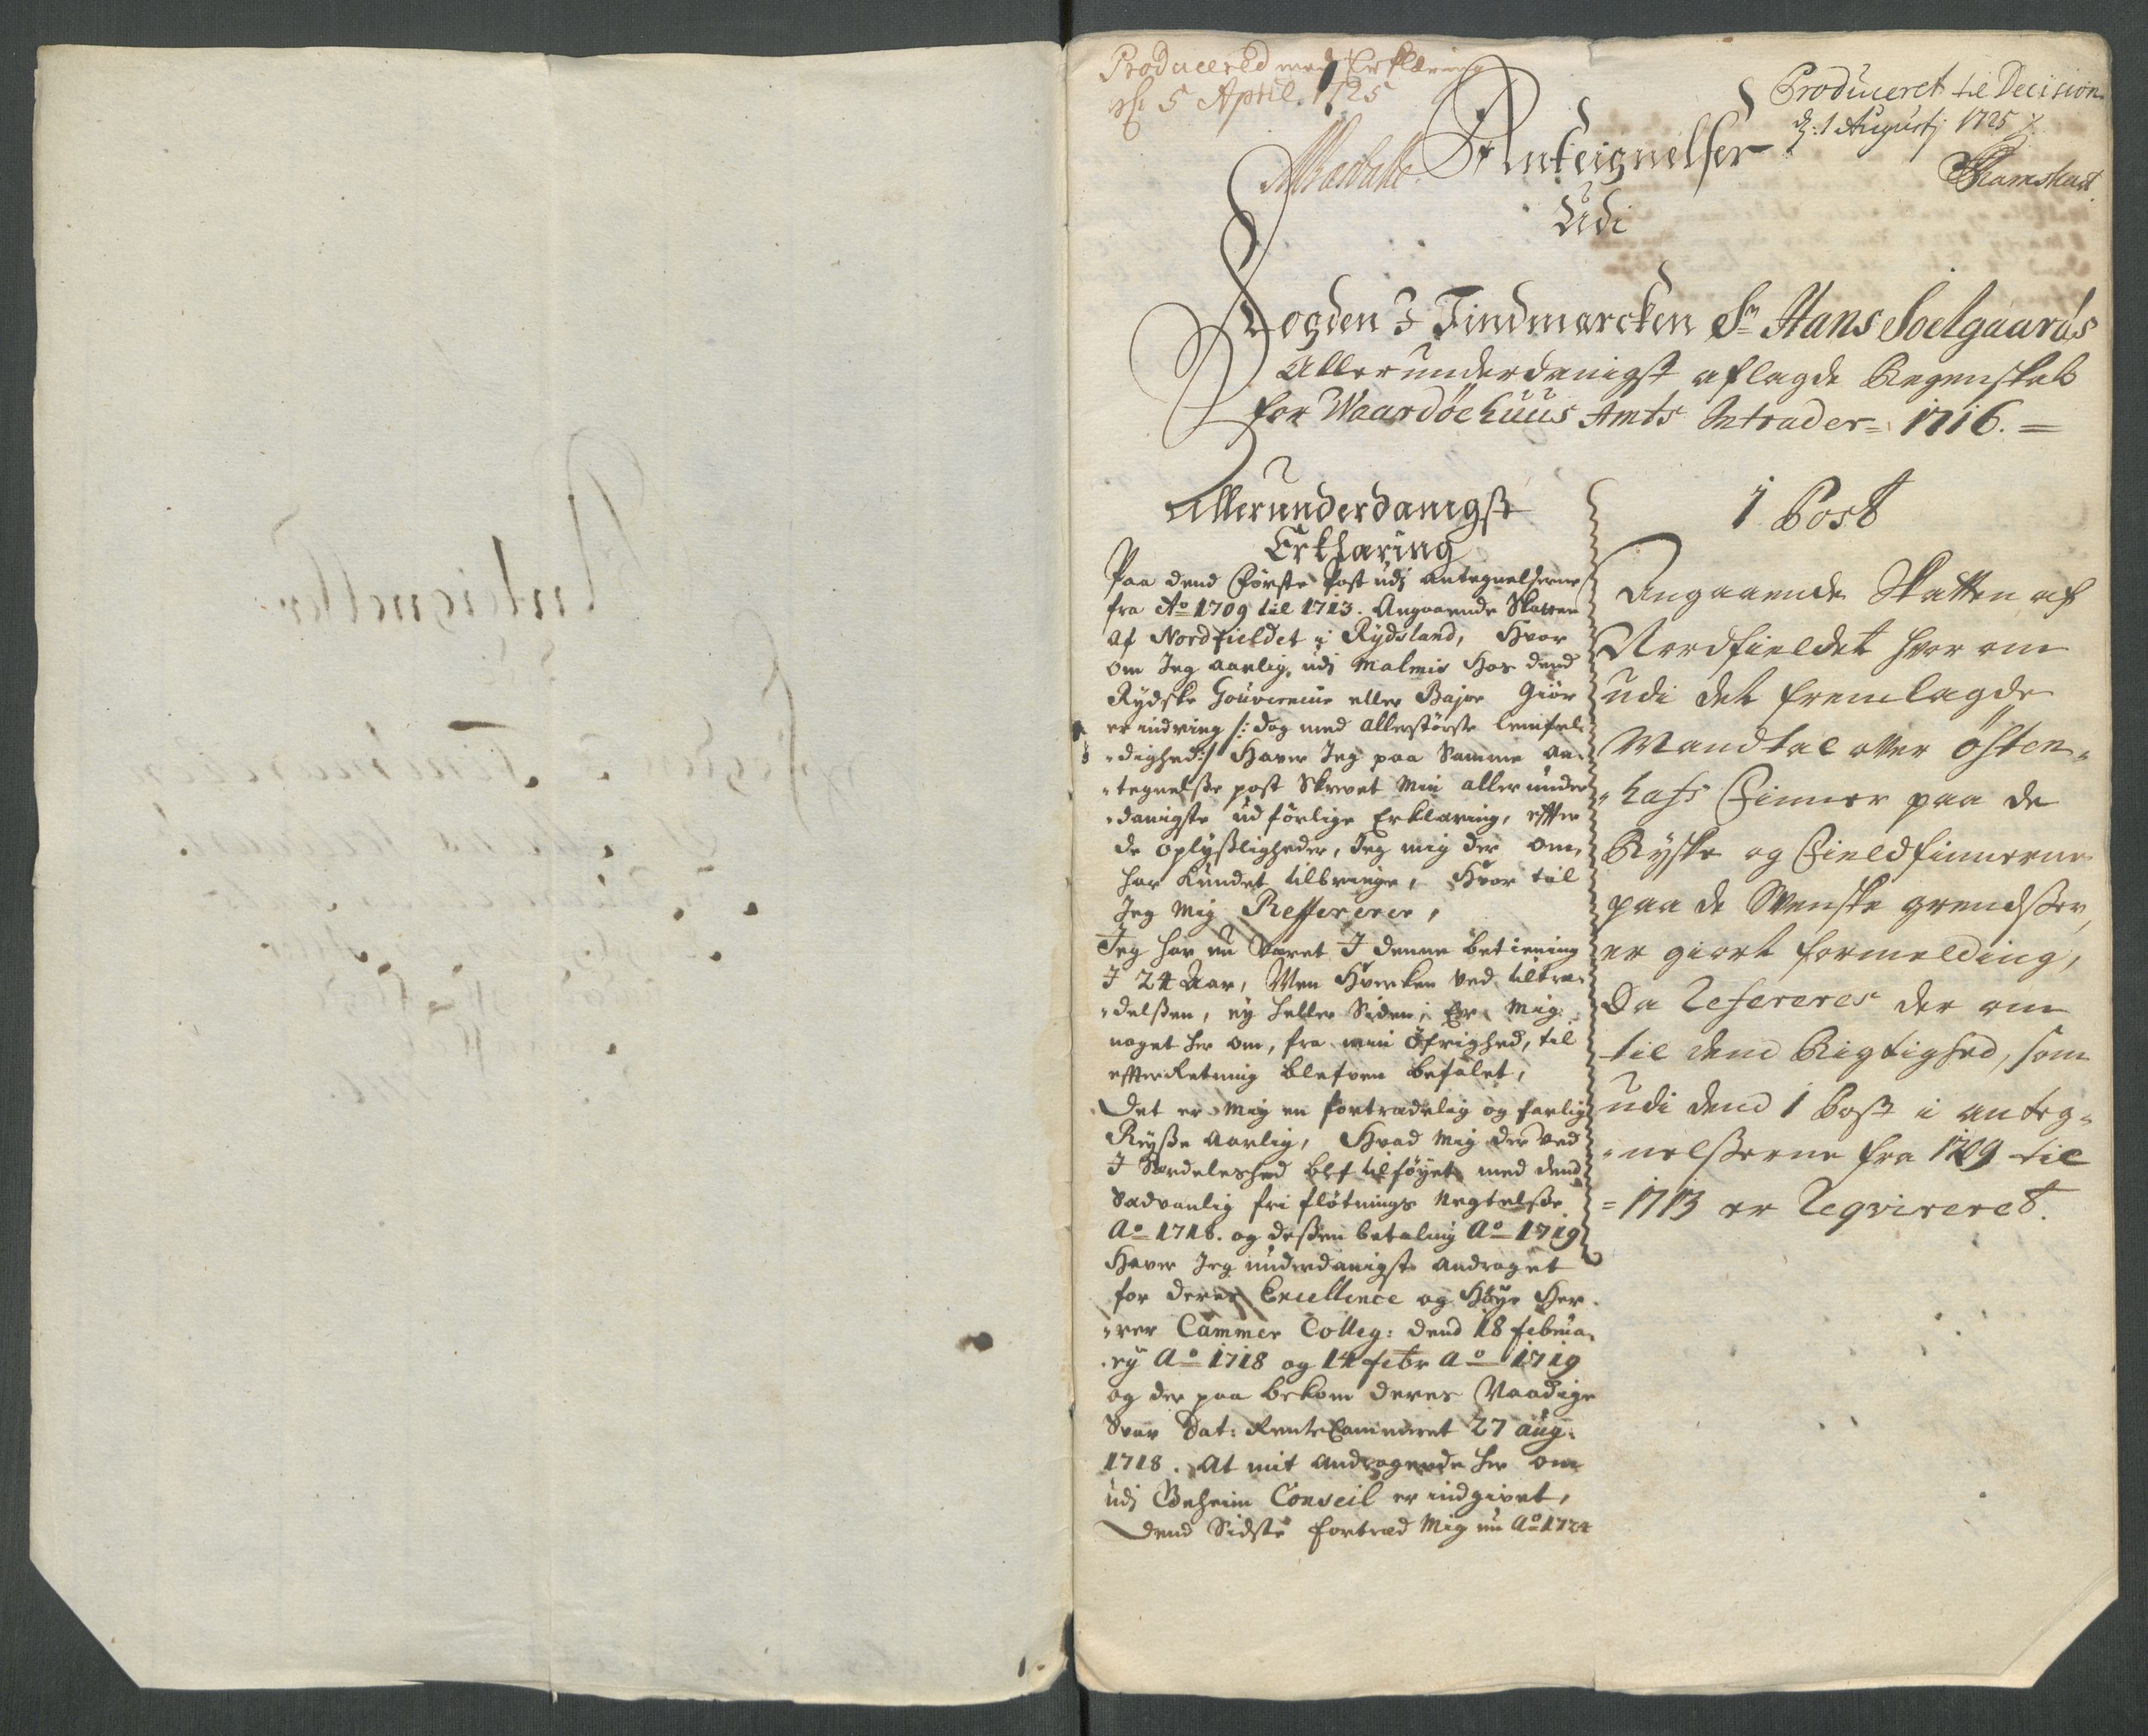 Producered med Erklæring
d: 5 April 1725
Produceret til Decision
d: 1 Augustj 1725
Ramshart
Anteignelser
Udi
Fogden I Findmarcken Sr Hans Soelgaards
Allerunderdanigst aflagde Regenskab
for Waardöehuus Amts Intrader 1716.
Allerunderdanigst
Erklaring
Paa dend Förste Post udj antegnelserne
fra Ao 1709 til 1713. Angaaende Skatten
af Nordfieldet i Rydsland, Hvor
om Jeg aarlig, udj Malmis Hos dend
Rydske Gouverneur eller Bajor Giör
erindring /: dog med allerstörste lemfel-
-dighed:/ Haver Jeg paa Samme an-
-tegnelsse post Skrevet Min allerunder
-danigste udförlige Erklaring, effter
de oplyssligheder, Jeg mig der om,
har Kundet tilbringe, Hvor til
Jeg Mig Reffererer,
Jeg har nu Varet I denne betiening
I 24 Aar, Men Hverken Ved tiltræ-
-delssen, ey heller Siden, Er Mig
noget her om, fra min Öfrighed, til
effterRetning blefven befalet,
Det er Mig en fortrædelig og farlig
Reysse Aarlig, Hvad Mig der Ved
I Serdeleshed blef tilföyet med dend
Sædvanlig fri flötnings Negtelsse
Ao 1718. og dessen betaling Ao 1719
Haver Jeg underdanigst Andraget
for Deres Excellence og Höye Her-
-rer Cammer Colleg: dend 18 februa-
-ry Ao 1718 og 14 febr Ao 1719
og der paa bekom deres Naadige
Svar Dat: RenteCammeret 27 aug:
1718. At mit andragende her om
udj Geheim Conseil er indgivet,
Dend Sidste fortræd Mig nu Ao 1724
1 Post
Angaaende Skatten af
Nordfieldet hvor om
udi det fremlagde
Mandtal over Östen-
-hafs Finner paa de
Ryske og Fieldfinnerne
paa de Svenske grendsser,
er giort formelding,
Da Refereres der om
til dend Rigtighed, som
udi dend 1 Post i anteg-
-nelsserne fra 1709 til
1713 er Reqvireret.